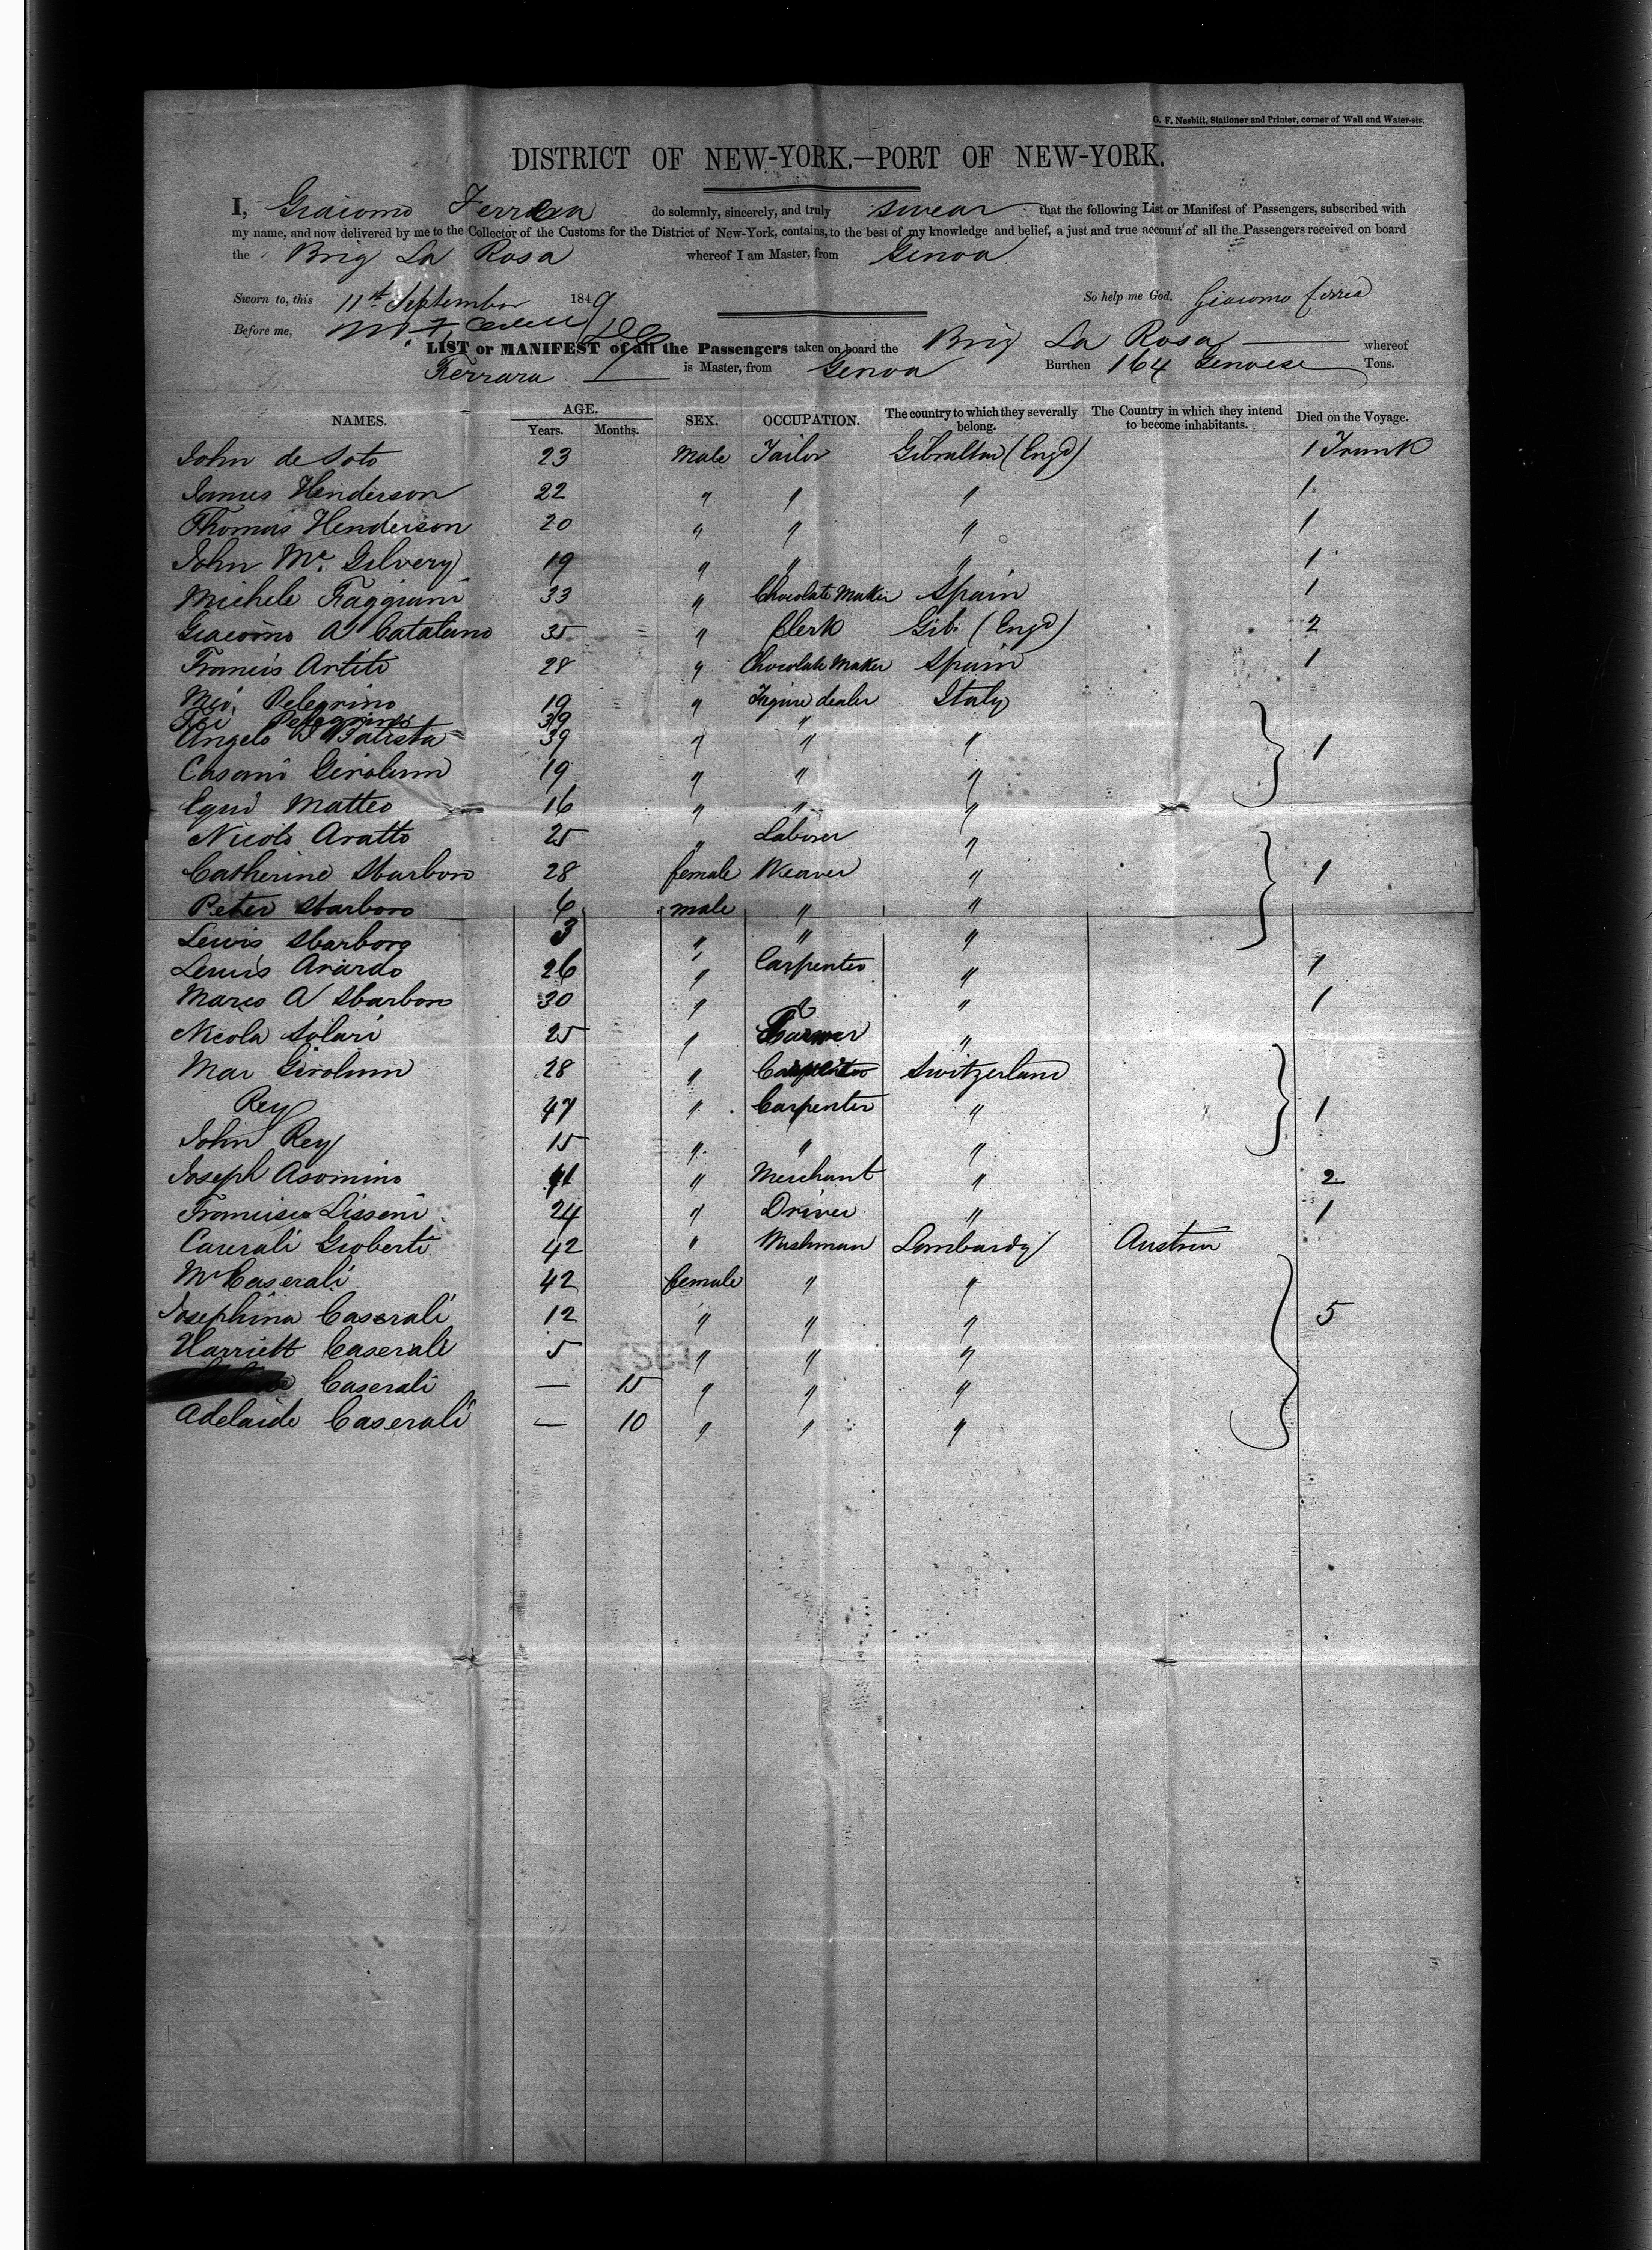 G. F. Nesbitt, Stationer and Printer, corner of Wall and Water-sts.
DISTRICT OF NEW-YORK.—PORT OF NEW-YORK.
I, Giacomo Ferrera do solemnly, sincerely, and truly swear that the following List or Manifest of Passengers, subscribed with
my name, and now delivered by me to the Collector of the Customs for the District of New-York, contains, to the best of my knowledge and belief, a just and true account of all the Passengers received on board
the Brig La Rosa whereof I am Master, from Genoa
Sworn to, this 11th September 1849 So help me God, Giacomo
Before me,
LIST or MANIFEST of all the Passengers taken on board the Brig La Rosa whereof
Ferrara is Master, from Genoa Burthen 164 Genoese Tons.
NAMES. AGE. Years. Months. SEX. OCCUPATION. The country to which they severally belong. The Country in which they intend to become inhabitants. Died on the Voyage.
John de Soto 23 Male Tailor Gibraltar (Engd) 1 Trunk
James Henderson 22 " " " 1
Thomas Henderson 20 " " " 1
John Mc. Gilvery 19 " " " 1
Michele Faggiani 33 " Chocolate Maker Spain 1
Giacomo A Catalano 35 " Clerk Gib. (Engd) 2
Francis Artite 28 " Chocolate Maker Spain 1
Pelegrino 19 " Figure dealer Italy
Pelegrino 39 "
Angelo B Batista 39 " " " 1
Casani Girolum 19 " " "
Equi Matteo 16 " " "
Nicolo Aratto 25 " Laborer "
Catherine Sbarbon 28 female Weaver " 1
Peter Sbarboro 6 male " "
Lewis Sbarboro 3 " " "
Lewis Arardo 26 " Carpenter " 1
Marco A Sbarboro 30 " " 1
Nicola Solari 25 " Farmer "
Mar Girolum 28 " Carpenter Switzerland
Rey 47 " Carpenter " 1
John Rey 15 " " "
Joseph Asomino 41 " Merchant " 2
Francisco Lisseni 24 " Driver " 1
Caserali Gioberti 42 " Lombardy Austria
Mr Caserali 42 female " "
Josephina Caserali 12 " " " 5
Harriett Caserali 5 " " "
Caserali — 15 " " "
Adelaide Caserali — 10 " " "